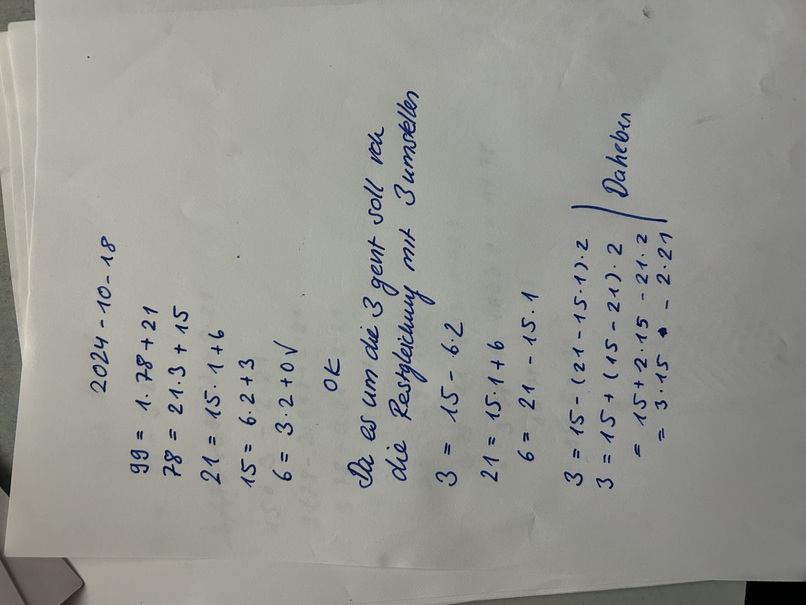 2024-10-18
99 = 1·78+21
78 = 21·3+15
21 = 15·1+6
15 = 6·2+3
6 = 3·2+0 √
OK
Da es um die 3 geht soll ich
die Restgleichung mit 3 umstellen
3 = 15 - 6·2
21 = 15·1+6
6 = 21 - 15·1
3 = 15 - (21 - 15·1)·2
3 = 15 + (15 - 21)·2
= 15 + 2·15 - 21·2
= 3·15 - 2·21
Daheben